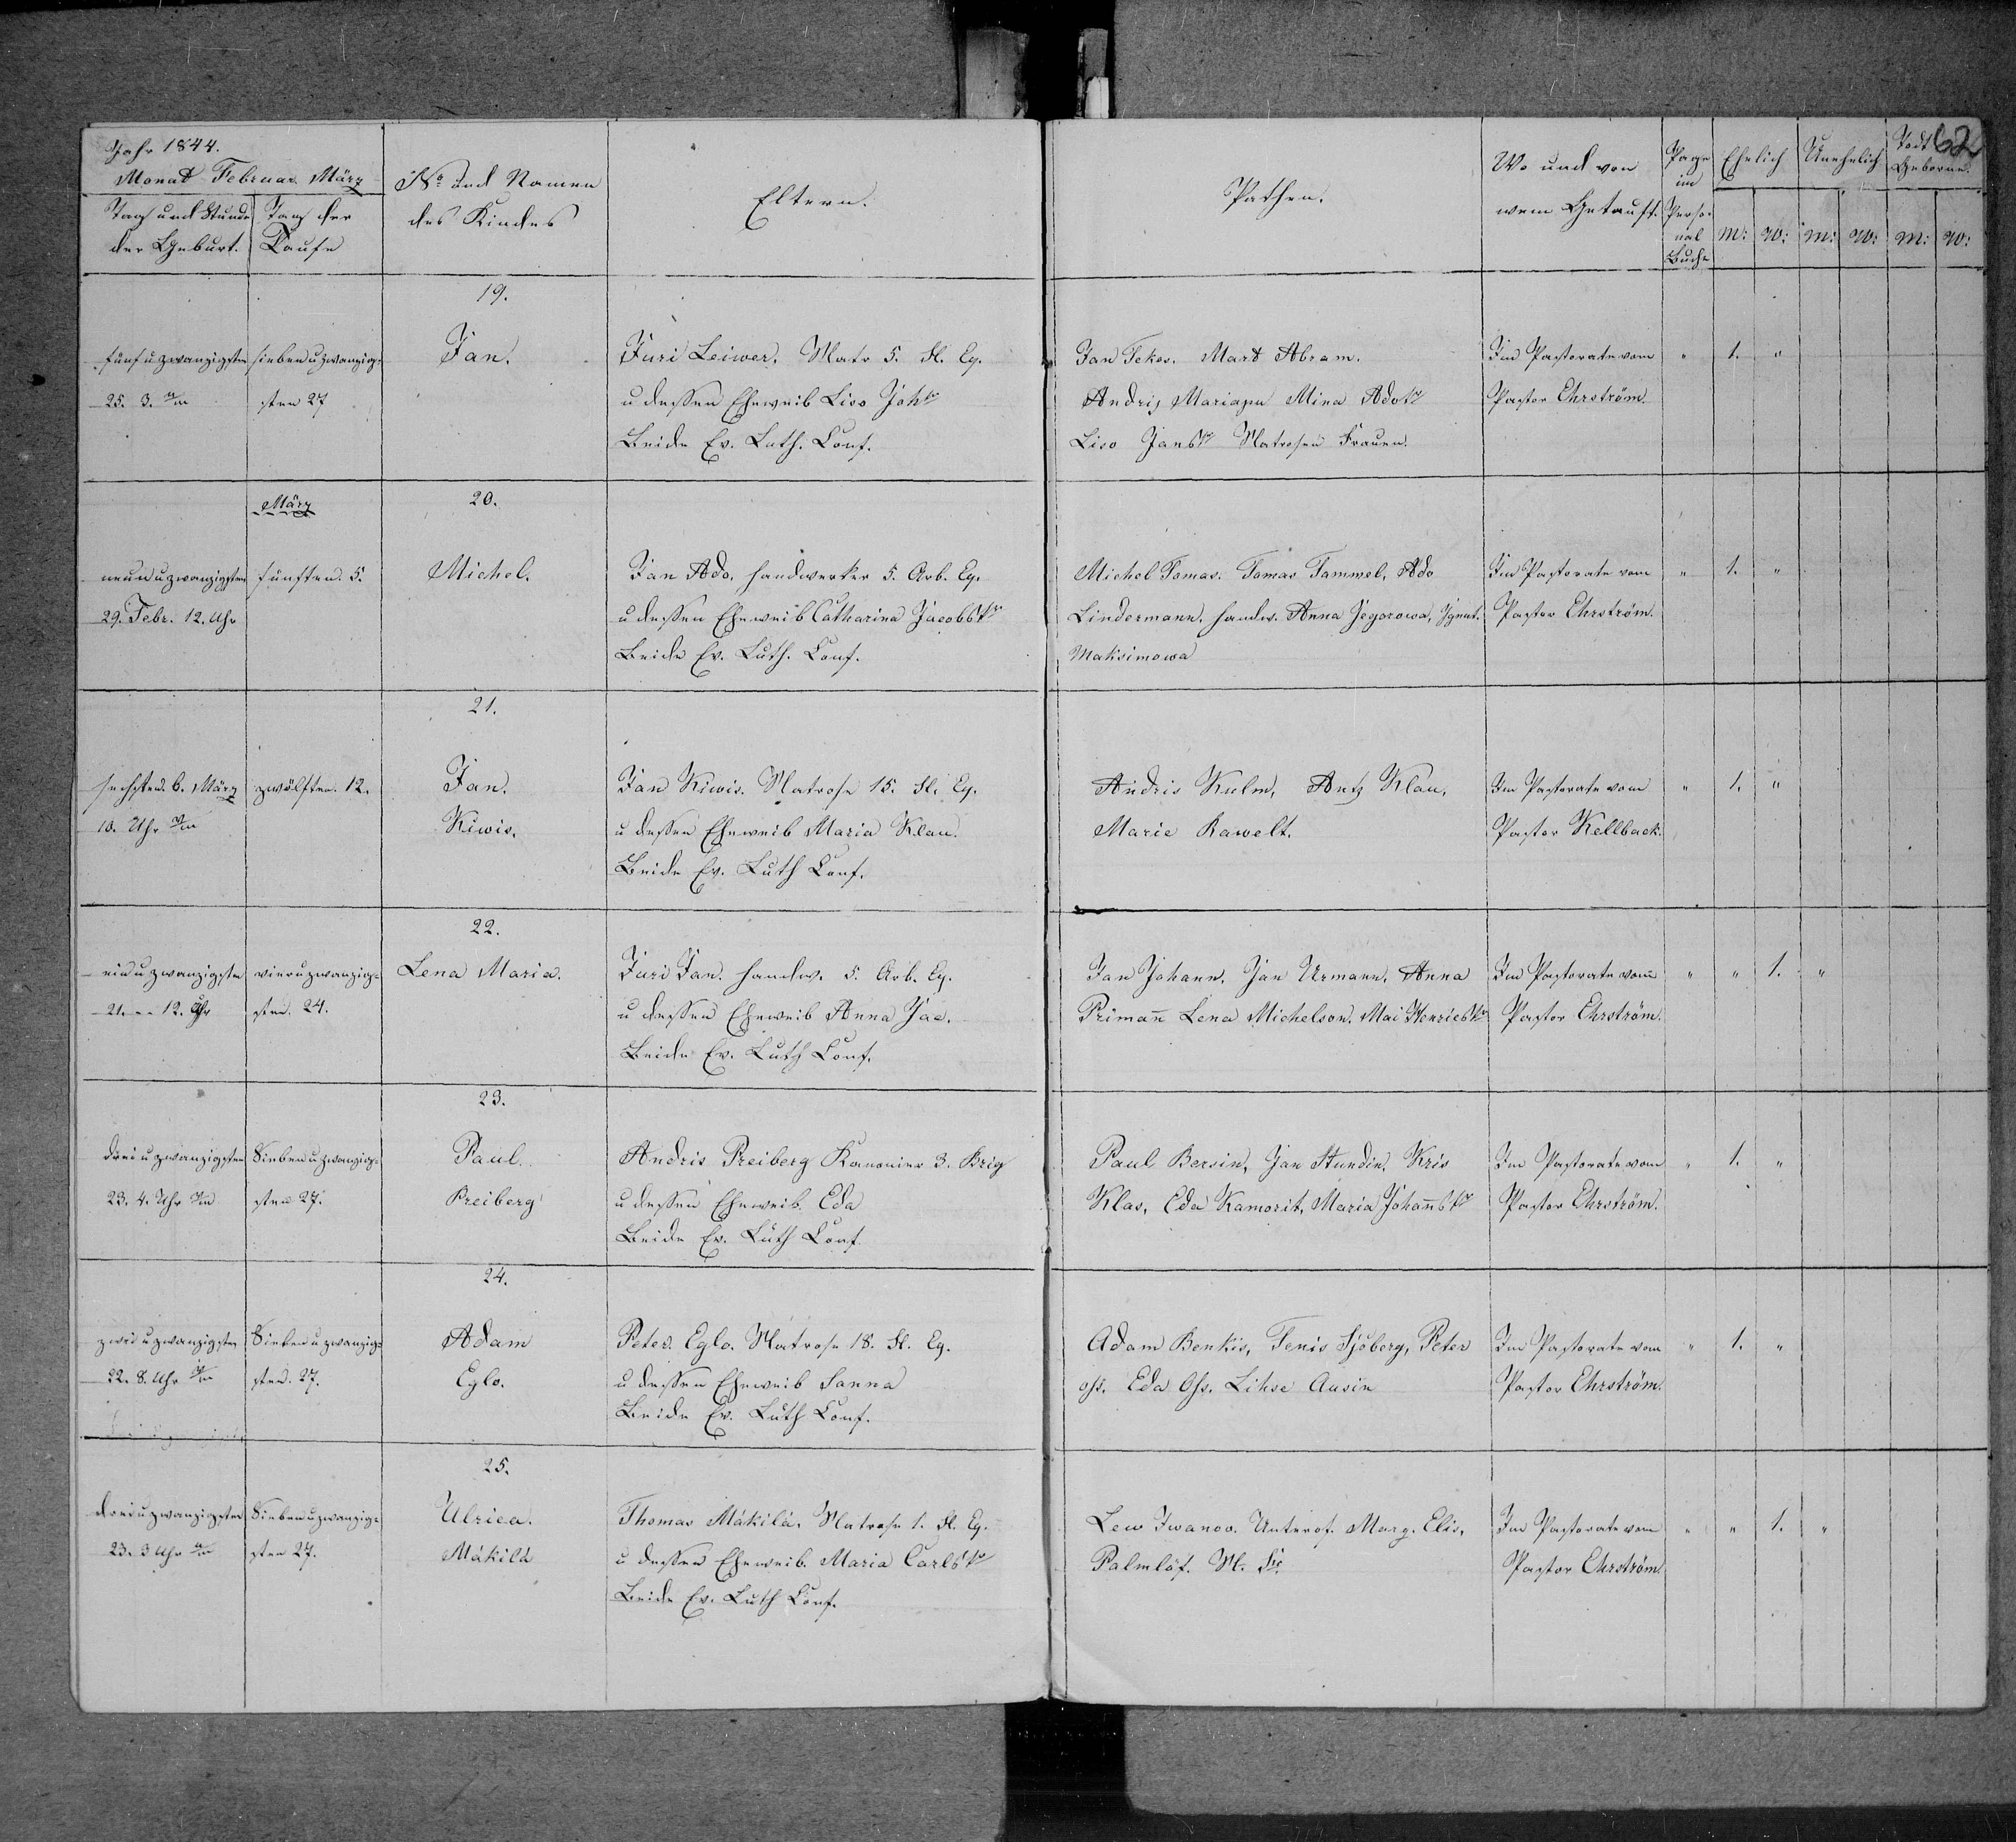 Jahr 1844.
Monat Februar März
Tag und Stunde der Geburt.
Tag der Taufe
No und Namen des Kindes
Eltern.
Pathen.
Wo und von wem Getauft.
Page im Perso-nal Buche
Ehelich
Unehelich
Todt Geborne.
62
M: W: M: W: M: W:
19.
fünf u zwanzigsten sieben u zwanzig- Jan. Juri Leiwer, Matr 5. Fl. Eq. Jan Tekos. Mart Abram. Im Pastorate vom " 1. "
25. 3. sten 27 u dessen Eheweib Liso Joh Andris Mariapu Mina Ado Pastor Ehrström.
Beide Ev. Luth. Conf. Liso Jans Matrosen Frauen.
März 20.
neun u zwanzigsten fünften. 5. Michel. Jan Ado, Handwerker 5. Arb. Eq. Michel Tomas. Tomas Tammel, Ado Im Pastorate vom " 1. "
29. Febr. 12. Uhr u dessen Eheweib Catharina Jacobs Lindermann, Handw. Anna Jegorowa, Ignat. Pastor Ehrström.
Beide Ev. Luth. Conf. Maksimowa
21.
sechsten. 6. März zwölften. 12. Jan. Jan Kiwis. Matrose 15. Fl. Eq. Andris Kulm, Antz Klau, Im Pastorate vom " 1. "
10. Uhr Kiwis. u dessen Eheweib Maria Klau. Marie Rawelt. Pastor Kellback.
Beide Ev. Luth Conf.
22.
ein u zwanzigsten vier u zwanzig- Lena Maria. Juri Jan. Handw. 5. Arb. Eq. Jan Johann, Jan Urmann, Anna Im Pastorate vom " " 1. "
21. -- 12. Uhr sten. 24. u dessen Eheweib Anna Jac. Primañ Lena Michelson. Mai Henries Pastor Ehrström.
Beide Ev. Luth Conf.
23.
drei u zwanzigsten Sieben u zwanzig- Paul. Andris Preiberg Kanonier 3. Brig Paul Bersin, Jan Stundin, Kris Im Pastorate vom " 1. "
23. 4. Uhr sten 27. Preiberg u dessen Eheweib. Eda Klas, Eda Kamorit, Maria Johañs Pastor Ehrström.
Beide Ev. Luth Conf
24.
zwei u zwanzigsten Sieben u zwanzig- Adam Peter Eglo. Matrose 18. Fl. Eq. Adam Benkis, Tenis Sjöberg, Peter Im Pastorate vom " 1. "
22. 8. Uhr sten. 27. Eglo. u dessen Eheweib Sanna Oss. Eda Oss. Lihse Ausin Pastor Ehrström.
Beide Ev. Luth Conf.
25.
drei u zwanzigsten Sieben u zwanzig- Ulrica. Thomas Mäkilä. Matrose 1. Fl. Eq. Lew Iwanov. Unterof. Marg. Elis. Im Pastorate vom " " 1. "
23. 3 Uhr sten 27. Mäkilä u dessen Eheweib. Maria Carls Palmlöf. Pastor Ehrström
Beide Ev. Luth Conf.